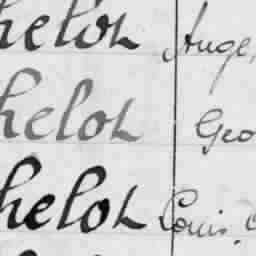 helot Auge
helot Geo
helot Louis